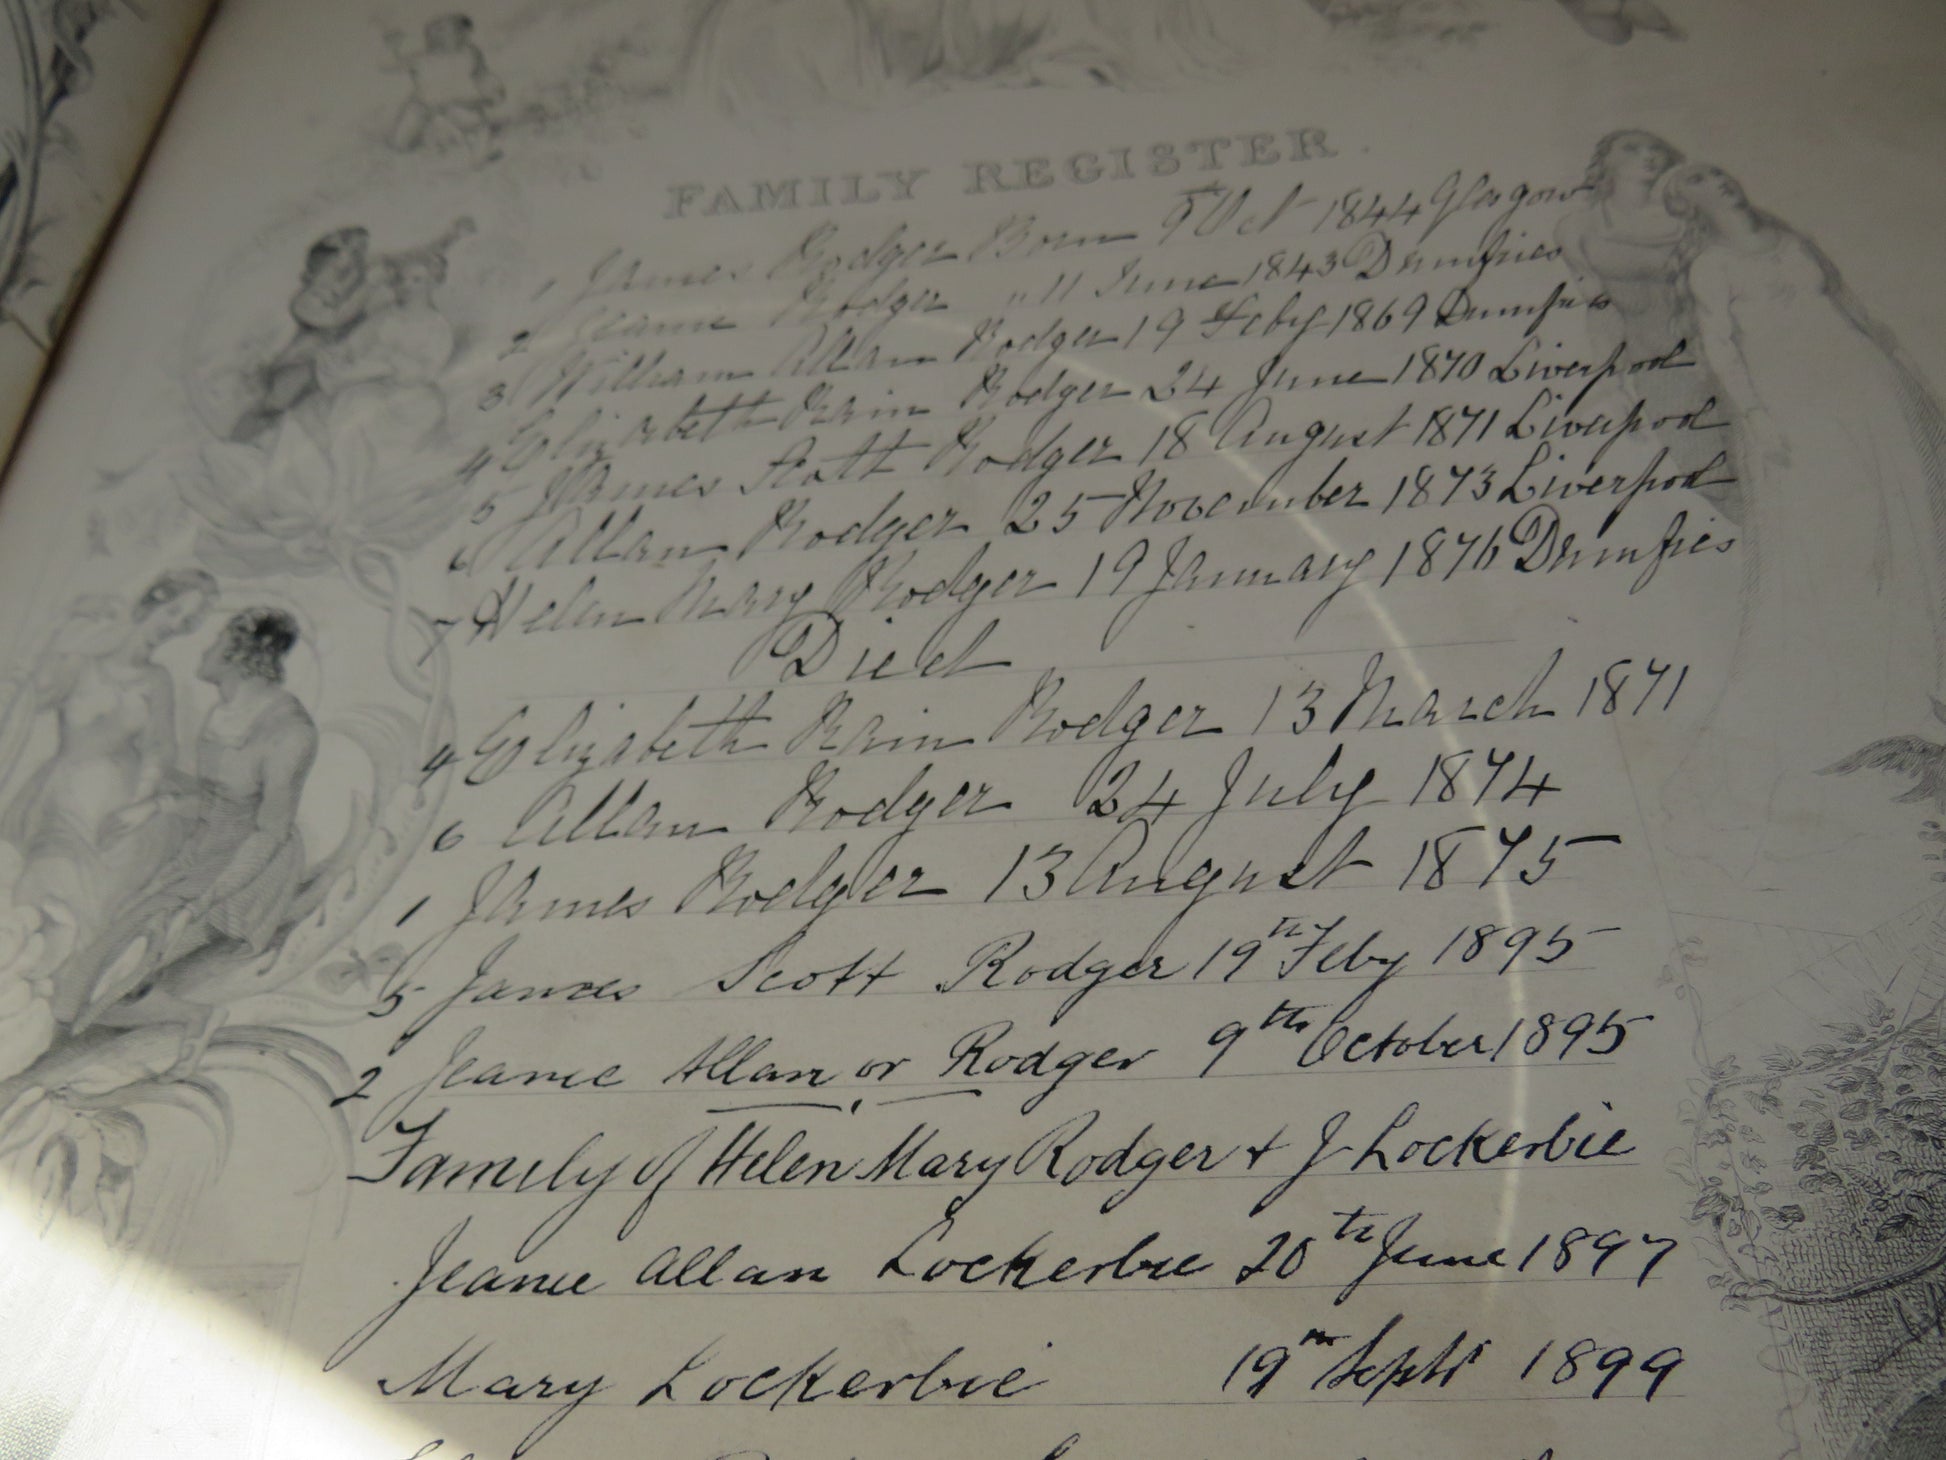 FAMILY REGISTER.
1 James Rodger Born 9th Oct 1844 Glasgow
2 Jeanie Rodger " 11 June 1843 Dumfries
3 William Allan Rodger 19 Feby 1869 Dumfries
4 Elizabeth Bain Rodger 24 June 1870 Liverpool
5 James Scott Rodger 18 August 1871 Liverpool
6 Allan Rodger 25 November 1873 Liverpool
7 Helen Mary Rodger 19 January 1876 Dumfries
Died
4 Elizabeth Bain Rodger 13 March 1871
6 Allan Rodger 24 July 1874
1 James Rodger 13 August 1875
5 James Scott Rodger 19th Feby 1895
2 Jeanie Allan or Rodger 9th October 1895
Family of Helen Mary Rodger + J Lockerbie
Jeanie Allan Lockerbie 20th June 1897
Mary Lockerbie 19th Septr 1899